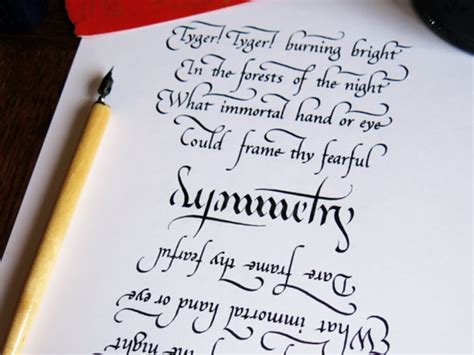 Tyger! Tyger! burning bright
In the forests of the night
What immortal hand or eye
Could frame thy fearful
Symmetry
Dare frame thy fearful
What immortal hand or eye
the night